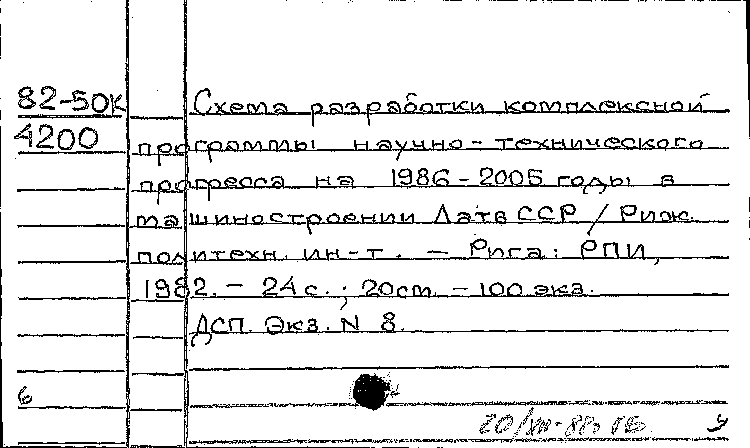 82-50К Схема разработки комплексной
4200 программы научно-технического
прогресса на 1986-2005 годы в
машиностроении Латв ССР / Риж.
политехн. ин-т. — Рига: РПИ,
1982. — 24 с.; 20см. — 100 экз.
ДСП. Экз. N 8.
6
20/XII-88г.
У